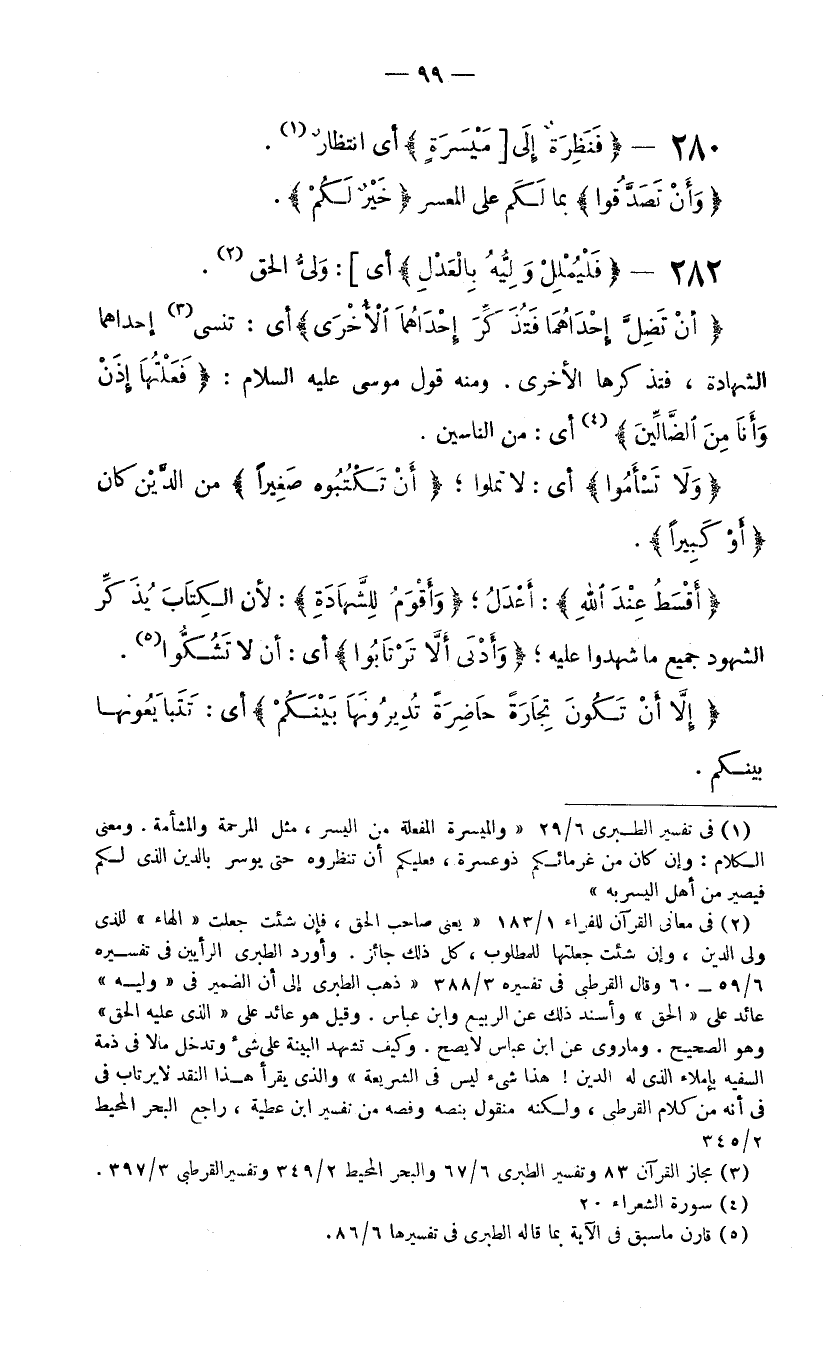 — ٩٩ —
٢٨٠ — ﴿ فَنَظِرَةٌ إِلَى [ مَيْسَرَةٍ ﴾ أى انتظارٌ (١) .
﴿ وَأَنْ تَصَدَّقُوا ﴾ بما لَكم على المعسر ﴿ خَيْرٌ لَكُمْ ﴾ .
٢٨٢ — ﴿ فَلْيُمْلِلْ وَلِيُّهُ بِالْعَدْلِ ﴾ أى ] : وَلىُّ الحق (٢) .
﴿ أَنْ تَضِلَّ إِحْدَاهُمَا فَتُذَكِّرَ إِحْدَاهُمَا ٱلْأُخْرَى ﴾ أى : تنسى (٣) إحداهما
الشهادة ، فتذكرها الأخرى . ومنه قول موسى عليه السلام : ﴿ فَعَلْتُهَا إِذَنْ
وَأَنَا مِنَ ٱلضَّالِّينَ ﴾ (٤) أى : من الناسين .
﴿ وَلَا تَسْأَمُوا ﴾ أى : لا تملوا ؛ ﴿ أَنْ تَكْتُبُوه صَغِيراً ﴾ من الدَّيْن كان
﴿ أَوْ كَبِيراً ﴾ .
﴿ أَقْسَطُ عِنْدَ ٱللهِ ﴾ : أَعْدَلُ ؛ ﴿ وَأَقْوَمُ لِلشَّهَادَةِ ﴾ : لأن الكِتَابَ يُذَكِّر
الشهود جميع ما شهدوا عليه ؛ ﴿ وَأَدْنَى أَلَّا تَرْتَابُوا ﴾ أى : أن لا تَشُكُّوا (٥) .
﴿ إِلَّا أَنْ تَكُونَ تِجَارَةً حَاضِرَةً تُدِيرُونَهَا بَيْنَكُمْ ﴾ أى : تَتَبايَعُونها
بينكم .
(١) فى تفسير الطبرى ٢٩/٦ « والميسرة المفعلة من اليسر ، مثل المرحمة والمشأمة . ومعنى
الكلام : وإن كان من غرمائكم ذوعسرة ، فعليكم أن تنظروه حتى يوسر بالدين الذى لكم
فيصير من أهل اليسر به »
(٢) فى معانى القرآن للفراء ١٨٣/١ « يعنى صاحب الحق ، فإن شئت جعلت « الهاء » للذى
ولى الدين ، وإن شئت جعلتها للمطلوب ، كل ذلك جائز . وأورد الطبرى الرأيين فى تفسيره
٥٩/٦ — ٦٠ وقال القرطبى فى تفيره ٣٨٨/٣ « ذهب الطبرى إلى أن الضمير فى « وليه »
عائد على « الحق » وأسند ذلك عن الربيع وابن عباس . وقيل هو عائد على « الذى عليه الحق »
وهو الصحيح . وماروى عن ابن عباس لايصح . وكيف تشهد البينة على شىء وتدخل مالا فى ذمة
السفيه بإملاء الذى له الدين ! هذا شىء ليس فى الشريعة » والذى يقرأ هـذا النقد لايرتاب فى
فى أنه من كلام القرطبى ، ولكنه منقول بنصه وفصه من تفسير ابن عطية ، راجع البحر المحيط
٣٤٥/٢
(٣) مجاز القرآن ٨٣ وتفسير الطبرى ٦٧/٦ والبحر المحيط ٣٤٩/٢ وتفسيرالقرطبى ٣٩٧/٣ .
(٤) سورة الشعراء ٢٠
(٥) قارن ماسبق فى الآية بما قاله الطبرى فى تفسيرها ٨٦/٦.